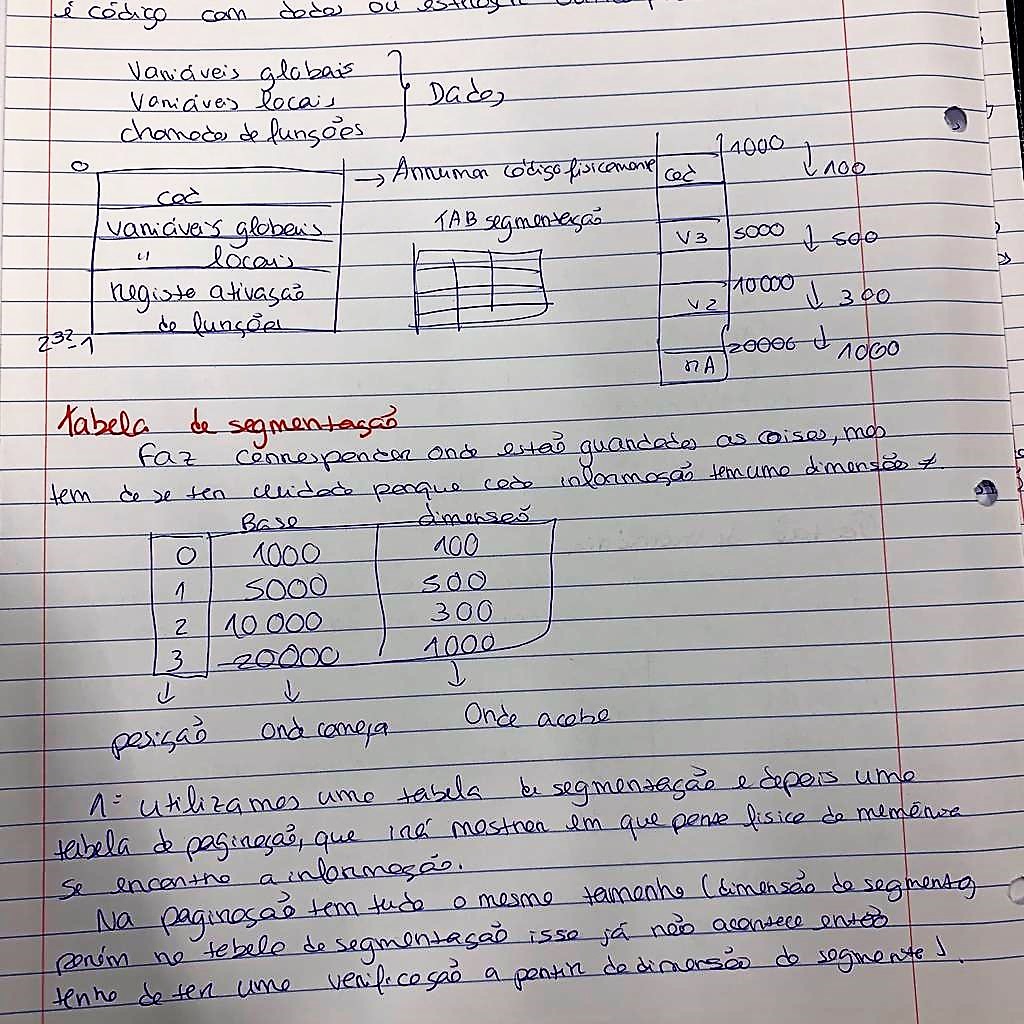 é código com dados ou
Variáveis globais
Variáveis locais
chamada de funções
Dados
0
cod
variáveis globais
" locais
registo ativação
de funções
2^32-1
→ Arrumar código fisicamente
TAB segmentação
cod
1000 ↓ 100
V3 5000 ↓ 500
V2 10000 ↓ 300
rA 20000 ↓ 1000
Tabela de segmentação
Faz corresponder onde estão guardadas as coisas, mas
tem de se ter cuidado porque cada informação tem uma dimensão ≠
Base dimensão
0 1000 100
1 5000 500
2 10 000 300
3 20000 1000
↓ ↓ ↓
posição Onde começa Onde acaba
1º utilizamos uma tabela de segmentação e depois uma
tabela de paginação, que irá mostrar em que parte física da memória
se encontra a informação.
Na paginação tem tudo o mesmo tamanho (dimensão do segmento,
porém na tabela de segmentação isso já não acontece então
tenho de ter uma verificação a partir da dimensão do segmento).